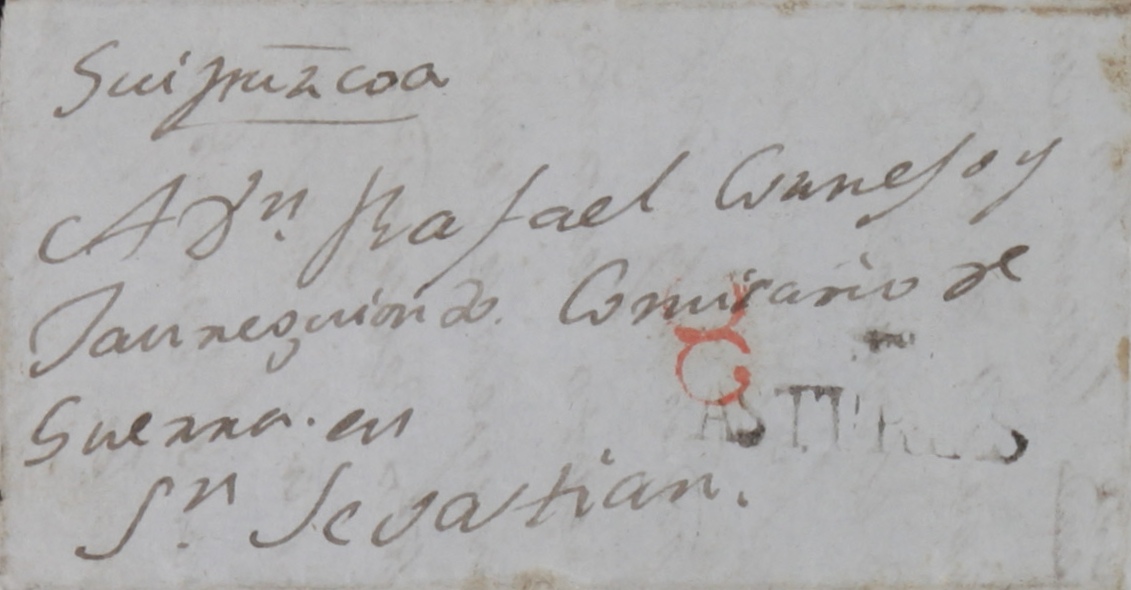 Guipuzcoa
A Dn. Rafael Cornejo y
Jaureguiondo. Comisario de
Guerra. en
Sn. Sevastian.
ASTURIAS